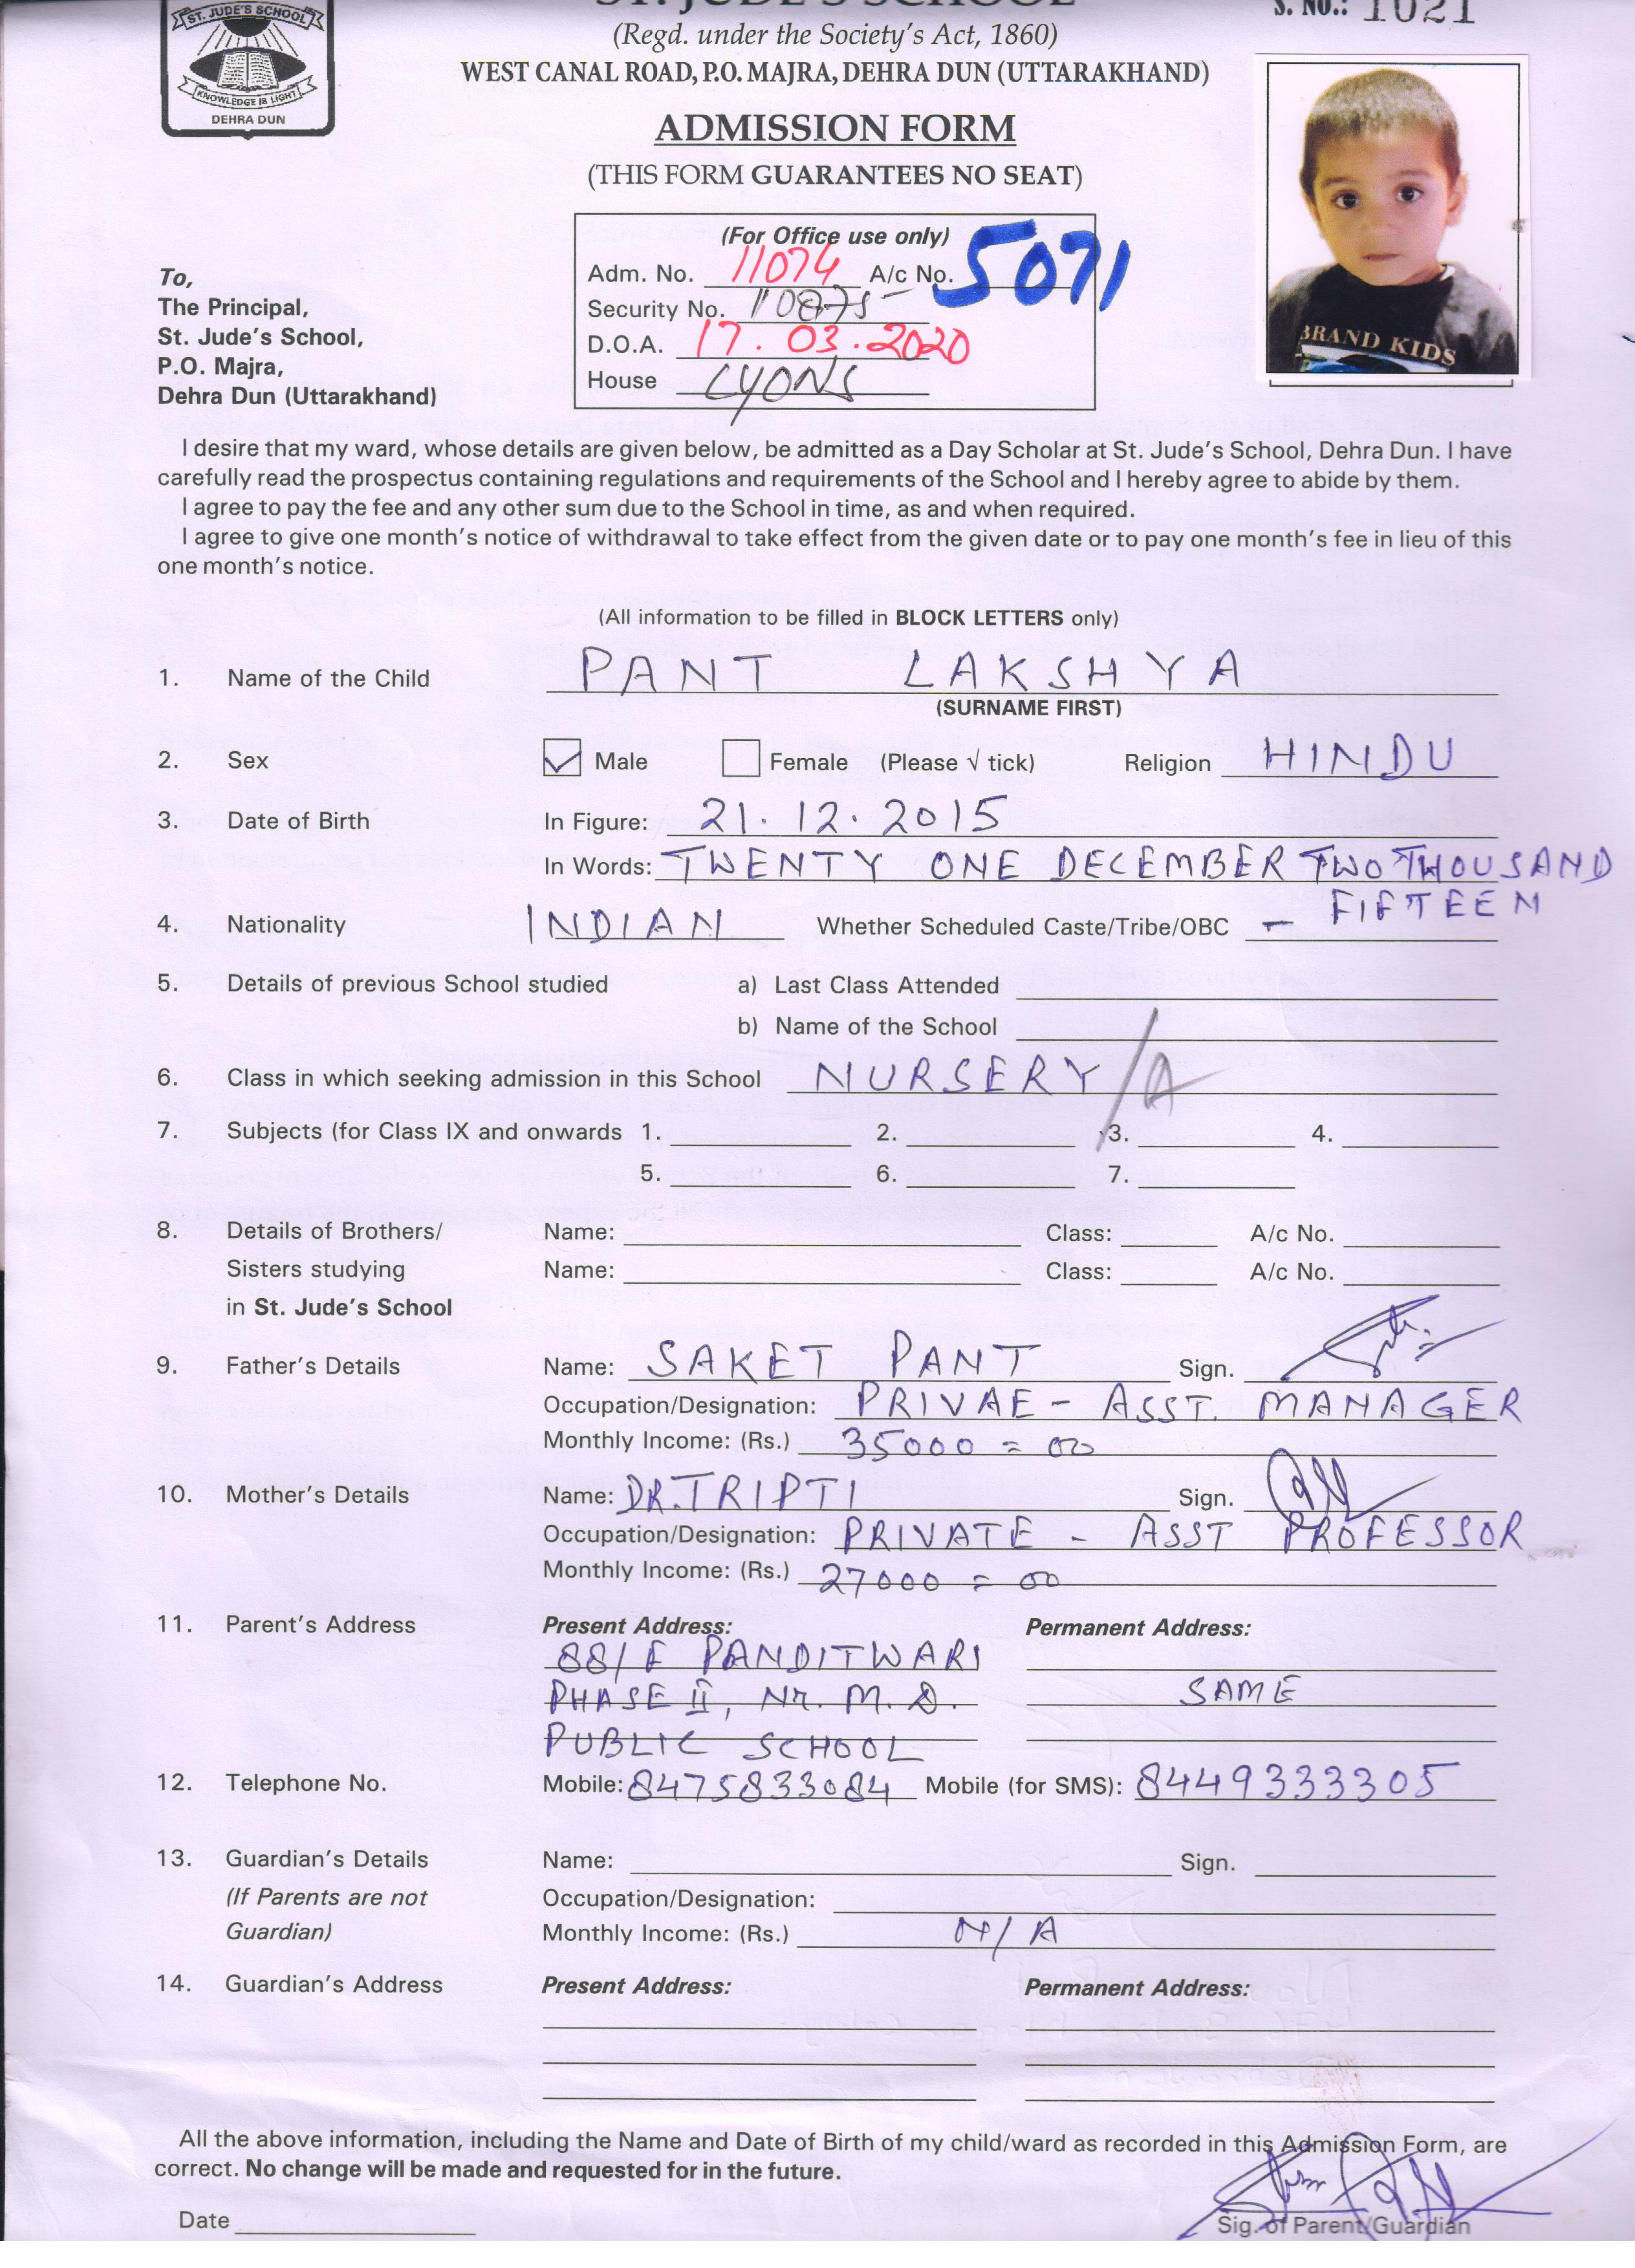 ST. JUDE'S SCHOOL
KNOWLEDGE IS LIGHT
DEHRA DUN
ST. JUDE'S SCHOOL
S. NO.: 1021
(Regd. under the Society's Act, 1860)
WEST CANAL ROAD, P.O. MAJRA, DEHRA DUN (UTTARAKHAND)
ADMISSION FORM
(THIS FORM GUARANTEES NO SEAT)
BRAND KIDS
(For Office use only)
Adm. No. 11074 A/c No. 5071
Security No. 10875
D.O.A. 17.03.2020
House LYONS
To,
The Principal,
St. Jude's School,
P.O. Majra,
Dehra Dun (Uttarakhand)
I desire that my ward, whose details are given below, be admitted as a Day Scholar at St. Jude's School, Dehra Dun. I have
carefully read the prospectus containing regulations and requirements of the School and I hereby agree to abide by them.
I agree to pay the fee and any other sum due to the School in time, as and when required.
I agree to give one month's notice of withdrawal to take effect from the given date or to pay one month's fee in lieu of this
one month's notice.
(All information to be filled in BLOCK LETTERS only)
1. Name of the Child PANT LAKSHYA
(SURNAME FIRST)
2. Sex ✓ Male Female (Please √ tick) Religion HINDU
3. Date of Birth In Figure: 21.12.2015
In Words: TWENTY ONE DECEMBER TWO THOUSAND
FIFTEEN
4. Nationality INDIAN Whether Scheduled Caste/Tribe/OBC –
5. Details of previous School studied a) Last Class Attended
b) Name of the School
6. Class in which seeking admission in this School NURSERY/A
7. Subjects (for Class IX and onwards 1. 2. 3. 4.
5. 6. 7.
8. Details of Brothers/ Name: Class: A/c No.
Sisters studying Name: Class: A/c No.
in St. Jude's School
9. Father's Details Name: SAKET PANT Sign.
Occupation/Designation: PRIVAE - ASST. MANAGER
Monthly Income: (Rs.) 35000 = 00
10. Mother's Details Name: DR. TRIPTI Sign.
Occupation/Designation: PRIVATE - ASST PROFESSOR
Monthly Income: (Rs.) 27000 = 00
11. Parent's Address Present Address: Permanent Address:
88/F PANDITWARI
PHASE II, Nr. M. D. SAME
PUBLIC SCHOOL
12. Telephone No. Mobile: 8475833084 Mobile (for SMS): 8449333305
13. Guardian's Details Name: Sign.
(If Parents are not Occupation/Designation:
Guardian) Monthly Income: (Rs.) N/A
14. Guardian's Address Present Address: Permanent Address:
All the above information, including the Name and Date of Birth of my child/ward as recorded in this Admission Form, are
correct. No change will be made and requested for in the future.
Date Sig. of Parent/Guardian